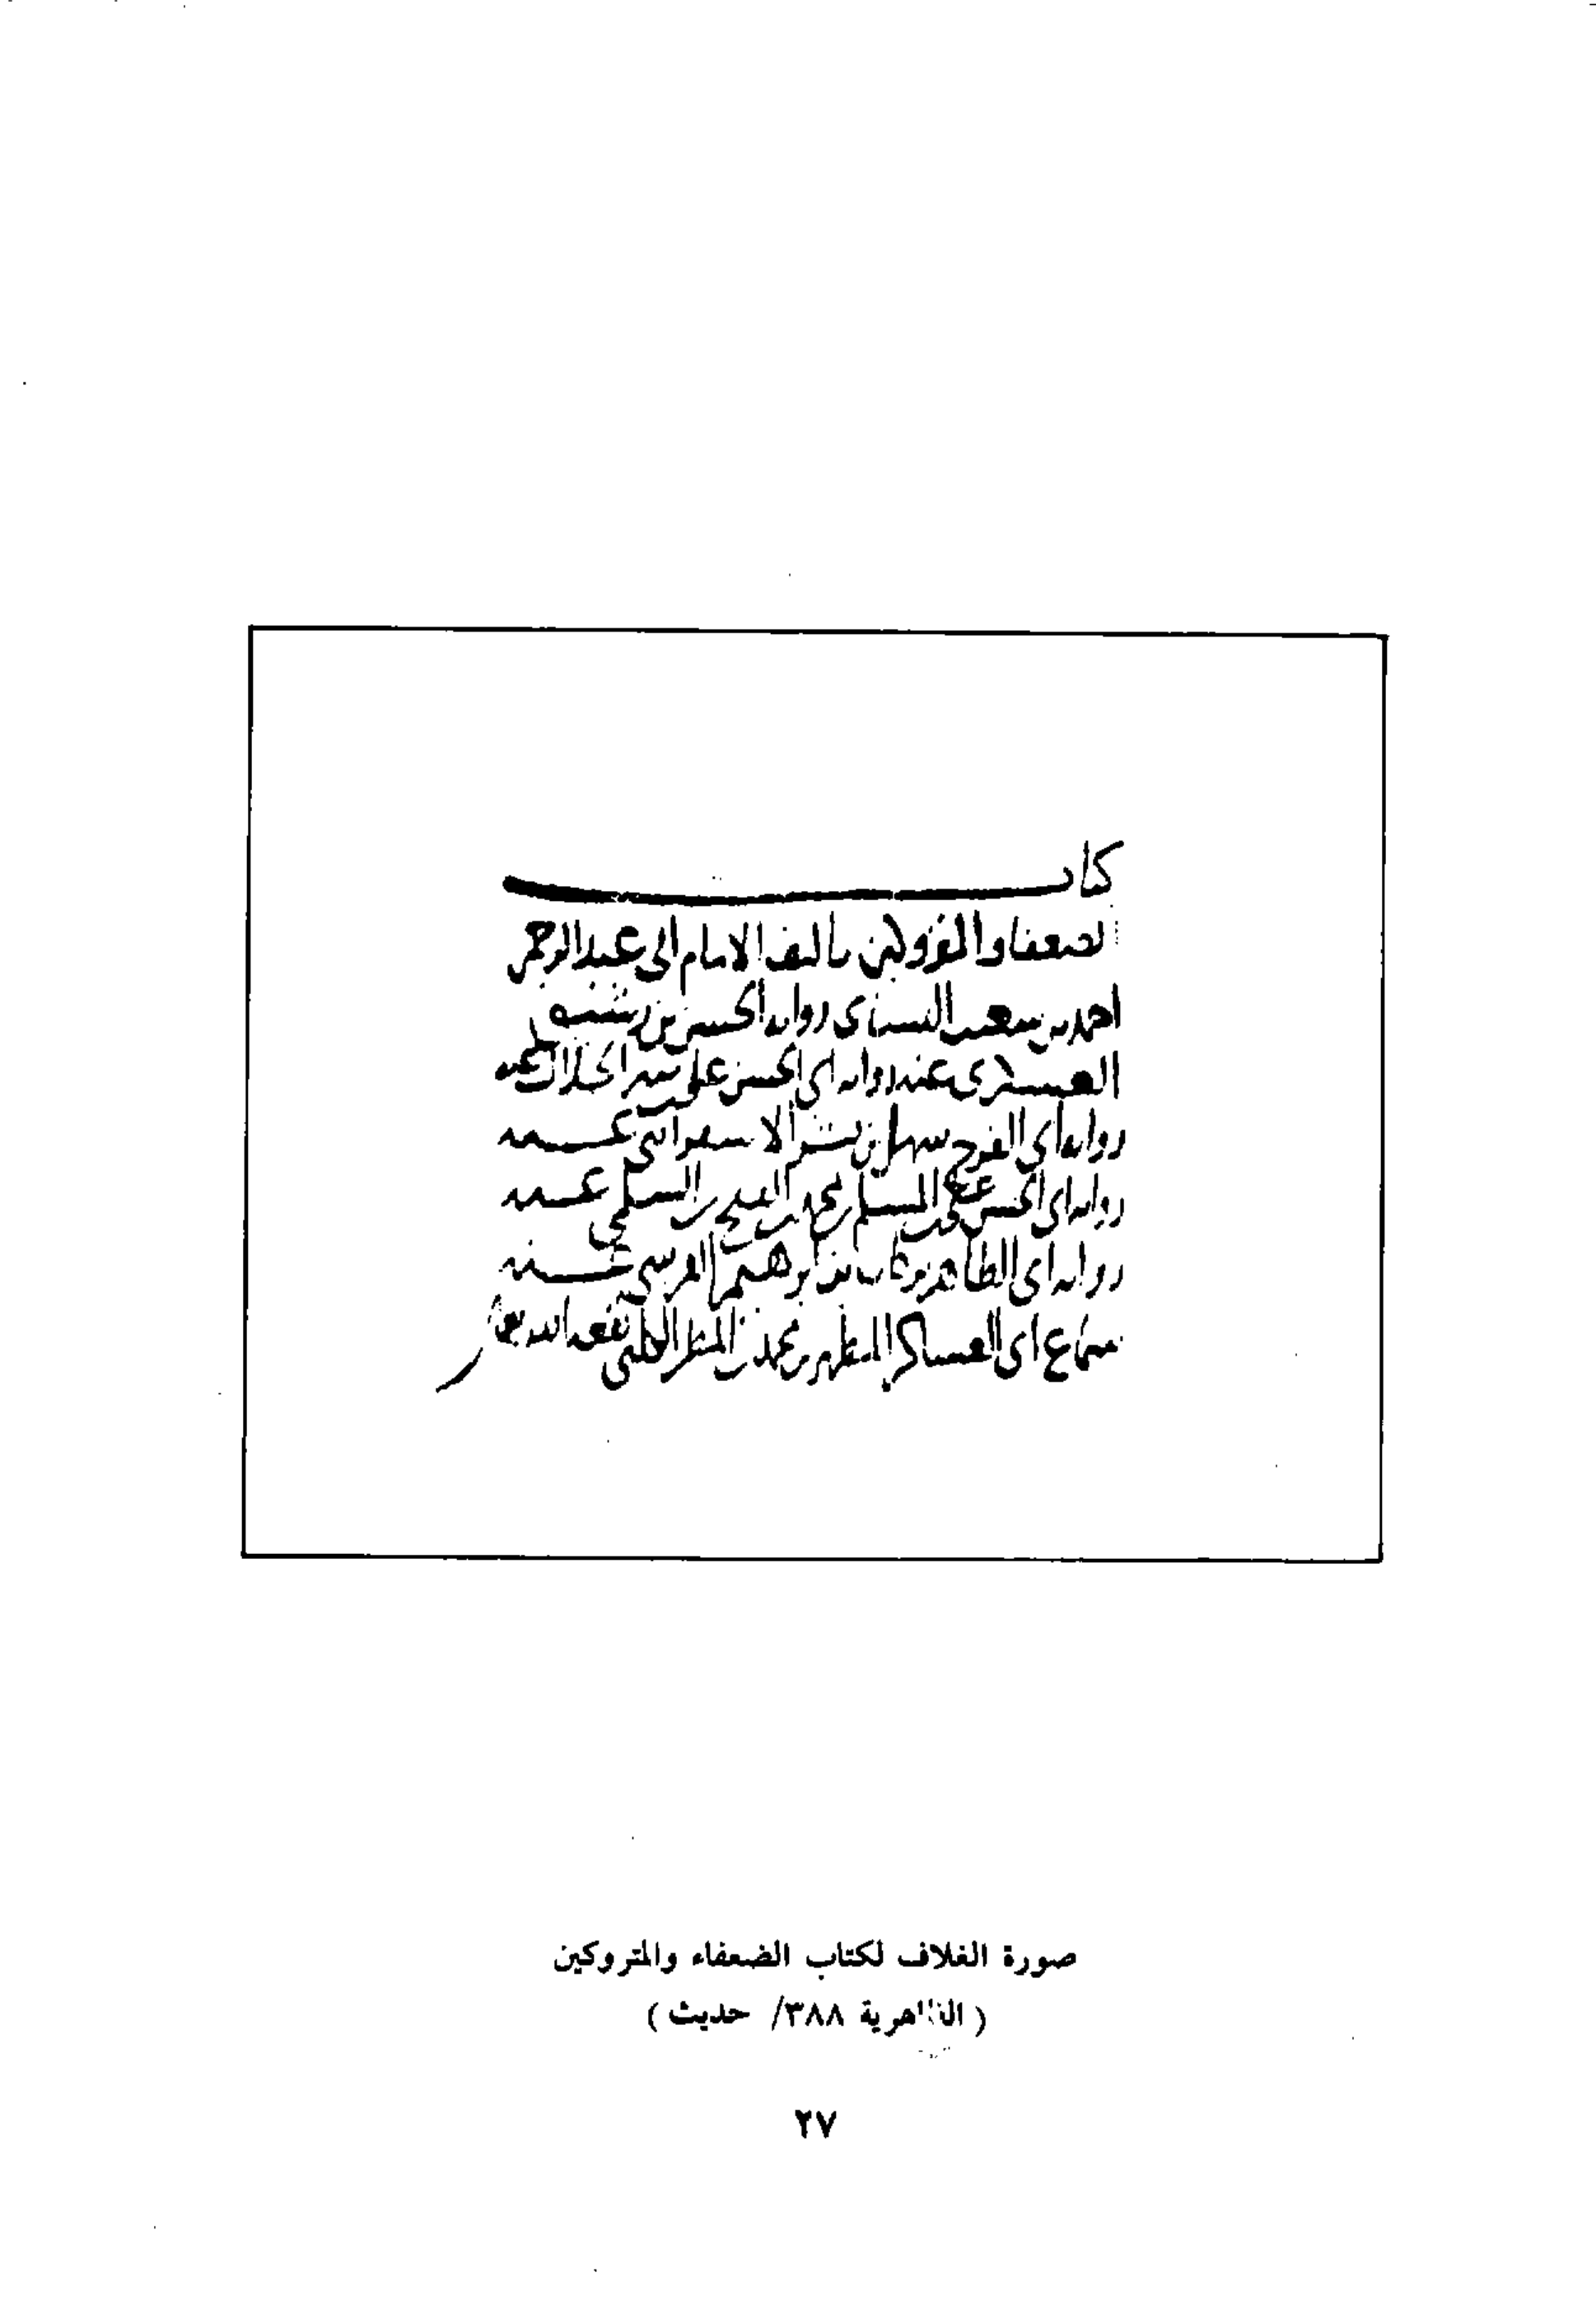 كتاب
الضعفاء والمتروكين تاليف الامام ابى عبد الرحمن
احمد بن شعيب النسائى رواية الحسن بن رشيق
العسكرى عنه رواية ابى الحسن على بن منير الخلال عنه
رواية ابى الفرج سهل بن بشر الاسفراينى عنه
رواية ابى الحسن على بن المسلم بن محمد بن الفتح السلمى عنه
رواية ابى الطاهر بركات بن ابرهيم القرشى عنه
سماع ابى العساكر المظهر بن محمد بن المظفر نفعه الله به
صورة الغلاف لكتاب الضعفاء والمتروكين
( الظاهرية ٣٨٨/ حديث )
٢٧